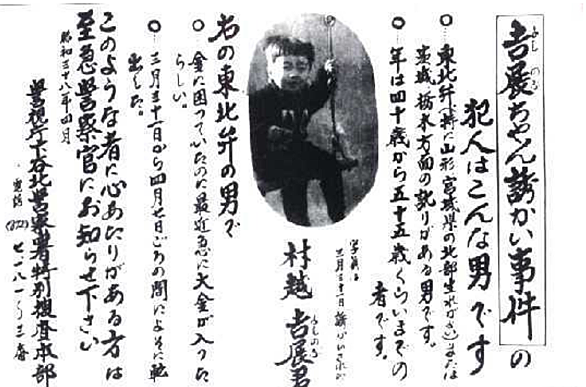 吉展ちゃん誘かい事件の
よしのぶ
犯人はこんな男です
○…東北弁(特に山形 宮城県の北部生れがき)または
茨城、栃木方面の訛りがある男です。
○…年は四十歳から五十五歳くらいまでの
者です。
写真は
三月三十一日誘かいされた
村越吉展君
よしのぶ
右の東北弁の男で
○ 金に困っていたのに最近急に大金が入った
らしい。
○…三月三十一日から四月七日ごろの間によそに
出した。
このような者に心あたりがある方は
至急警察官にお知らせ下さい
昭和三十八年四月
警視庁下谷北警察署特別捜査本部